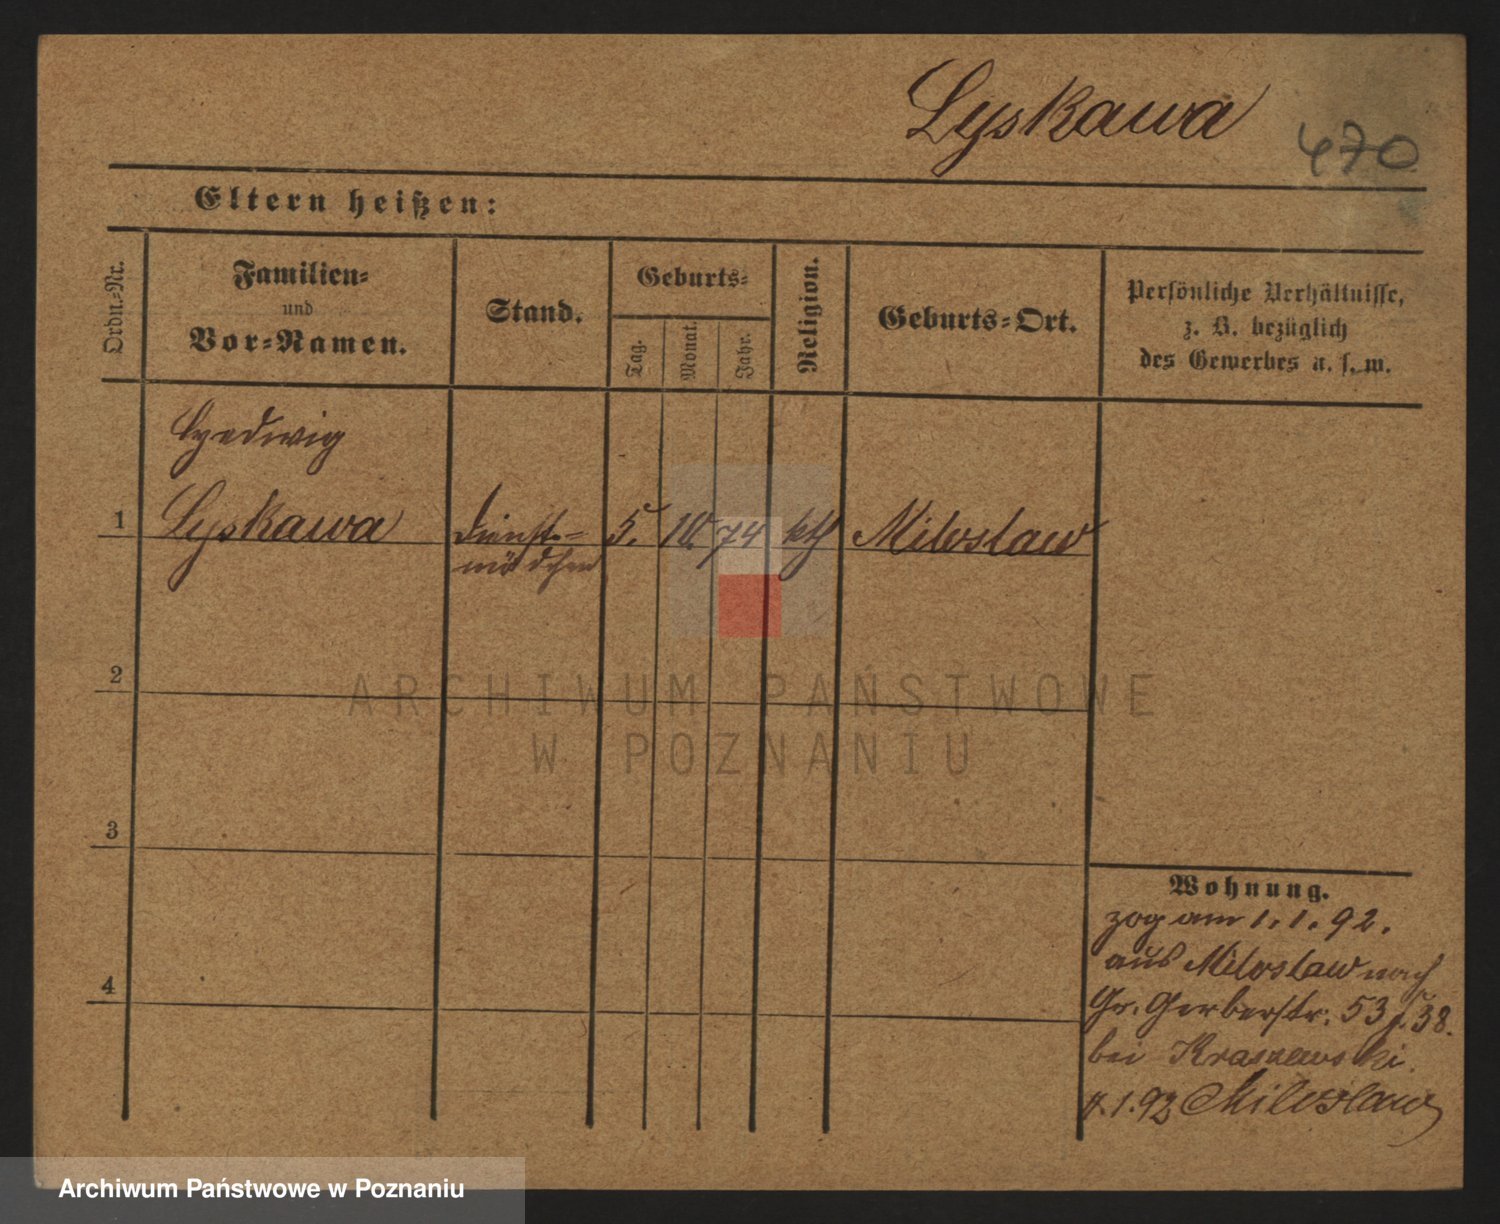 Lyskawa
470
Eltern heißen:
Ordn.-Nr.
Familien-
und
Vor-Namen.
Stand.
Geburts-
Tag.
Monat.
Jahr.
Religion.
Geburts-Ort.
Persönliche Verhältnisse,
z. B. bezüglich
des Gewerbes u. s. w.
Hedwig
1 Lyskawa Dienst- 5. 10. 74 kth Miloslaw
mädchen
2
3
4
Wohnung.
zog am 1. 1. 92.
aus Miloslaw nach
Gr. Gerberstr. 53 38.
bei Kraszewski.
1. 92 Miloslaw
ARCHIWUM PAŃSTWOWE
W POZNANIU
Archiwum Państwowe w Poznaniu